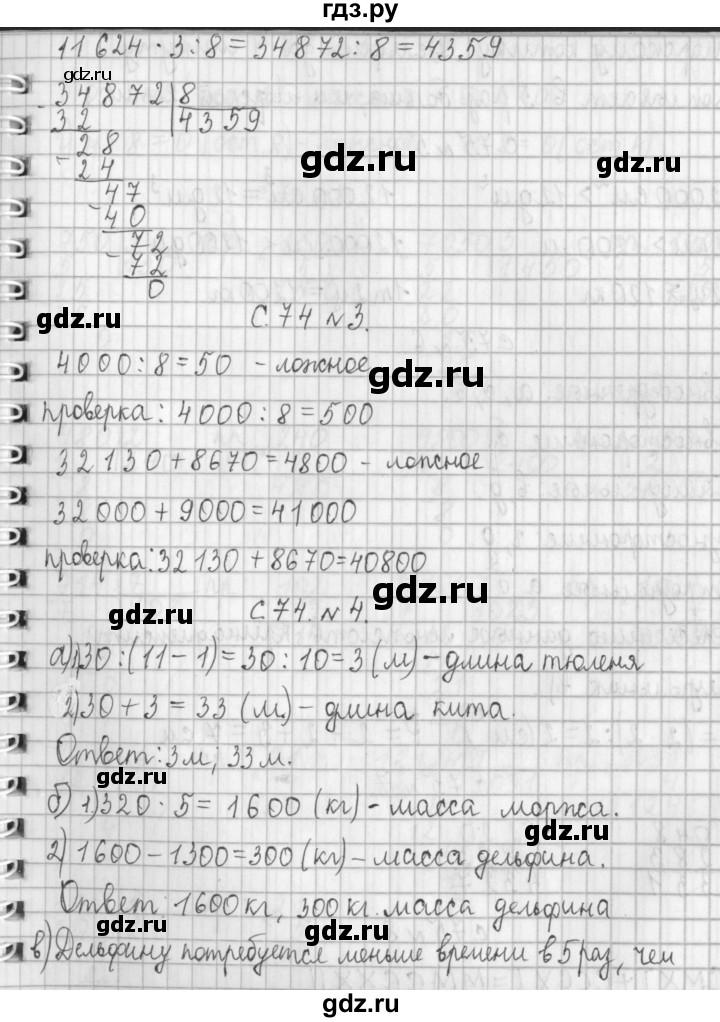 гдз.ру
11 624 · 3 : 8 = 34 872 : 8 = 4359
gdz.ru
34872 | 8
32 4359
28
24
gdz.ru
47
40
72
72
0
gdz.ru
С. 74 №3.
4000 : 8 = 50 - ложное
gdz.ru
проверка: 4000 : 8 = 500
32130 + 8670 = 4800 - ложное
32 000 + 9000 = 41 000
проверка: 32130 + 8670 = 40800
gdz.ru
gdz.ru
С. 74. №4.
а) 1) 30 : (11 - 1) = 30 : 10 = 3 (м) - длина тюленя
2) 30 + 3 = 33 (м) - длина кита.
Ответ: 3м; 33 м.
gdz.ru
б) 1) 320 · 5 = 1600 (кг) - масса моржа.
gdz.ru
2) 1600 - 1300 = 300 (кг) - масса дельфина.
Ответ 1600 кг, 300 кг масса дельфина
gdz.ru
gdz.ru
в) Дельфину потребуется меньше времени в 5 раз, чем
gdz.ru